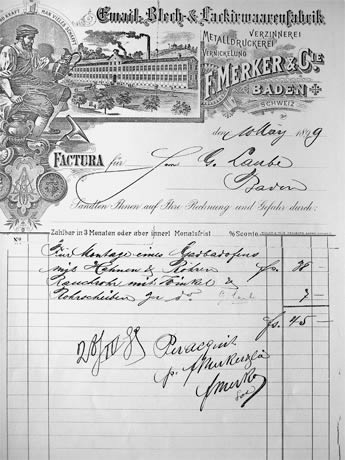 KRAFT MAN VIELES SCHAFFT
Email, Blech- & Lackirwaarenfabrik
VERZINNEREI
METALLDRUCKEREI
VERNICKELUNG
F. MERKER & CIE
BADEN
SCHWEIZ
den 10 May
FACTURA für Herrn G. Laube
Baden
Sandten Ihnen auf Ihre Rechnung und Gefahr durch:
No. Zahlbar in 3 Monaten oder aber innert Monatsfrist % Sconto.
Für Montage eines Gasbadofens
mit Hahnen & Röhren frs. 38 —
Rauchrohr mit Winkel &
7 —
frs. 45 —
Per acquit
p. F. Merker & Cie
Merker